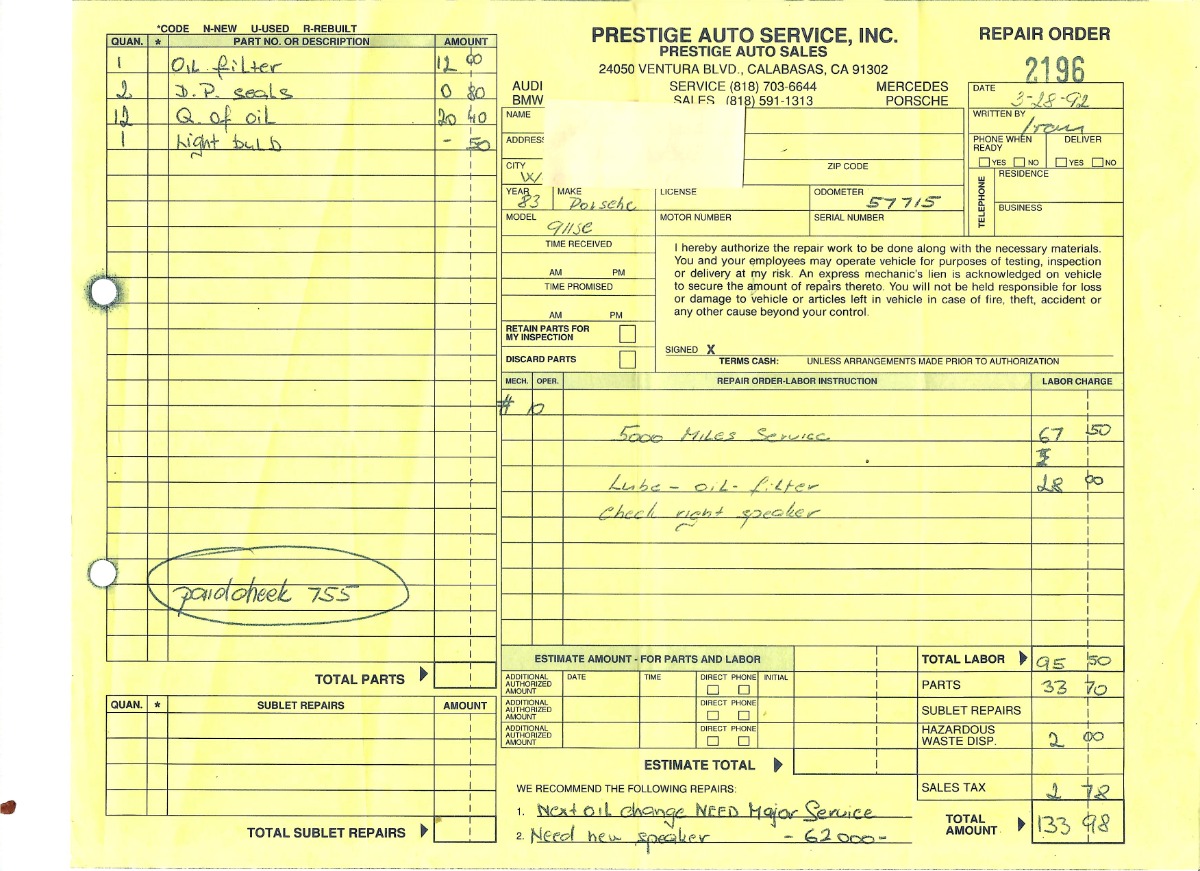 *CODE N-NEW U-USED R-REBUILT
QUAN. * PART NO. OR DESCRIPTION AMOUNT
1 OIL filter 12 00
2 D.P. seals 0 80
12 Q. of oil 20 40
1 Light bulb - 50
paid check 755
TOTAL PARTS
QUAN. * SUBLET REPAIRS AMOUNT
TOTAL SUBLET REPAIRS
PRESTIGE AUTO SERVICE, INC.
PRESTIGE AUTO SALES
24050 VENTURA BLVD., CALABASAS, CA 91302
AUDI SERVICE (818) 703-6644 MERCEDES
BMW SALES (818) 591-1313 PORSCHE
REPAIR ORDER
2196
DATE 3-28-92
WRITTEN BY
PHONE WHEN READY YES NO
DELIVER YES NO
TELEPHONE
RESIDENCE
BUSINESS
NAME
ADDRESS
CITY ZIP CODE
YEAR 83 MAKE Porsche LICENSE ODOMETER 57715
MODEL 911SC MOTOR NUMBER SERIAL NUMBER
TIME RECEIVED
AM PM
TIME PROMISED
AM PM
RETAIN PARTS FOR
MY INSPECTION
DISCARD PARTS
I hereby authorize the repair work to be done along with the necessary materials.
You and your employees may operate vehicle for purposes of testing, inspection
or delivery at my risk. An express mechanic's lien is acknowledged on vehicle
to secure the amount of repairs thereto. You will not be held responsible for loss
or damage to vehicle or articles left in vehicle in case of fire, theft, accident or
any other cause beyond your control.
SIGNED X
TERMS CASH: UNLESS ARRANGEMENTS MADE PRIOR TO AUTHORIZATION
MECH. OPER. REPAIR ORDER-LABOR INSTRUCTION LABOR CHARGE
# 10
5000 MILES Service 67 50
Lube - oil - filter 28 00
Check right speaker
ESTIMATE AMOUNT - FOR PARTS AND LABOR
ADDITIONAL AUTHORIZED AMOUNT DATE TIME DIRECT PHONE INITIAL
ADDITIONAL AUTHORIZED AMOUNT DIRECT PHONE
ADDITIONAL AUTHORIZED AMOUNT DIRECT PHONE
ESTIMATE TOTAL
TOTAL LABOR 95 50
PARTS 33 70
SUBLET REPAIRS
HAZARDOUS WASTE DISP. 2 00
SALES TAX 2 78
TOTAL AMOUNT 133 98
WE RECOMMEND THE FOLLOWING REPAIRS:
1. Next oil change NEED Major Service
2. Need new speaker - 62000 -